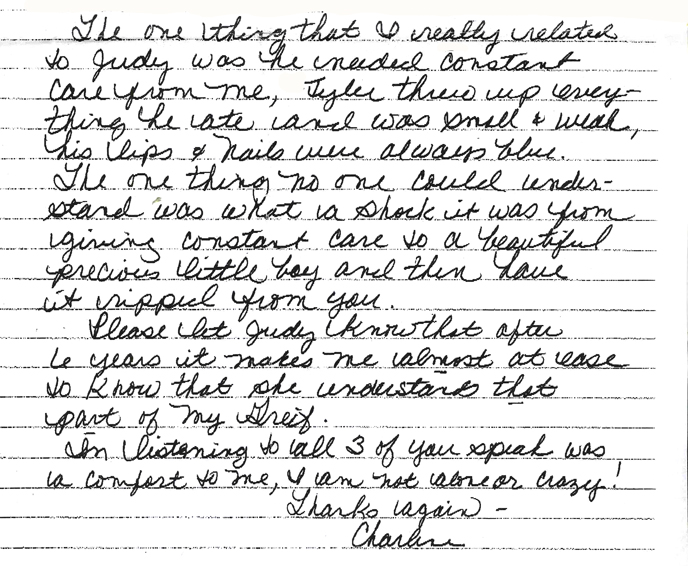 The one thing that I really related
to Judy was he needed constant
care from me, Tyler threw up every-
thing he ate and was small & weak,
his lips & nails were always blue.
The one thing no one could under-
stand was what a shock it was from
giving constant care to a beautiful
precious little boy and then have
it ripped from you.
Please let Judy know that after
6 years it makes me almost at ease
to know that she understands that
part of my Greif.
In listening to all 3 of you speak was
a comfort to me, I am not alone or crazy!
Thanks again -
Charlene